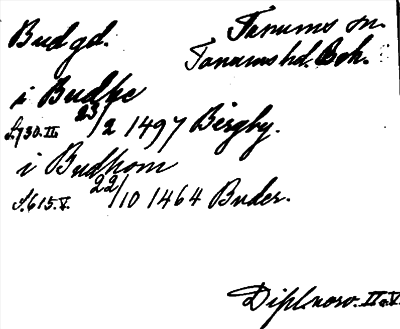 Bud gd.
Tanums sn.
Tanums hd. Boh.
i Budhe
s. 730. III 23/2 1497 Bergby.
i Budhom
s. 615. V. 22/10 1464 Buder.
Dipl. norv. II o. V.